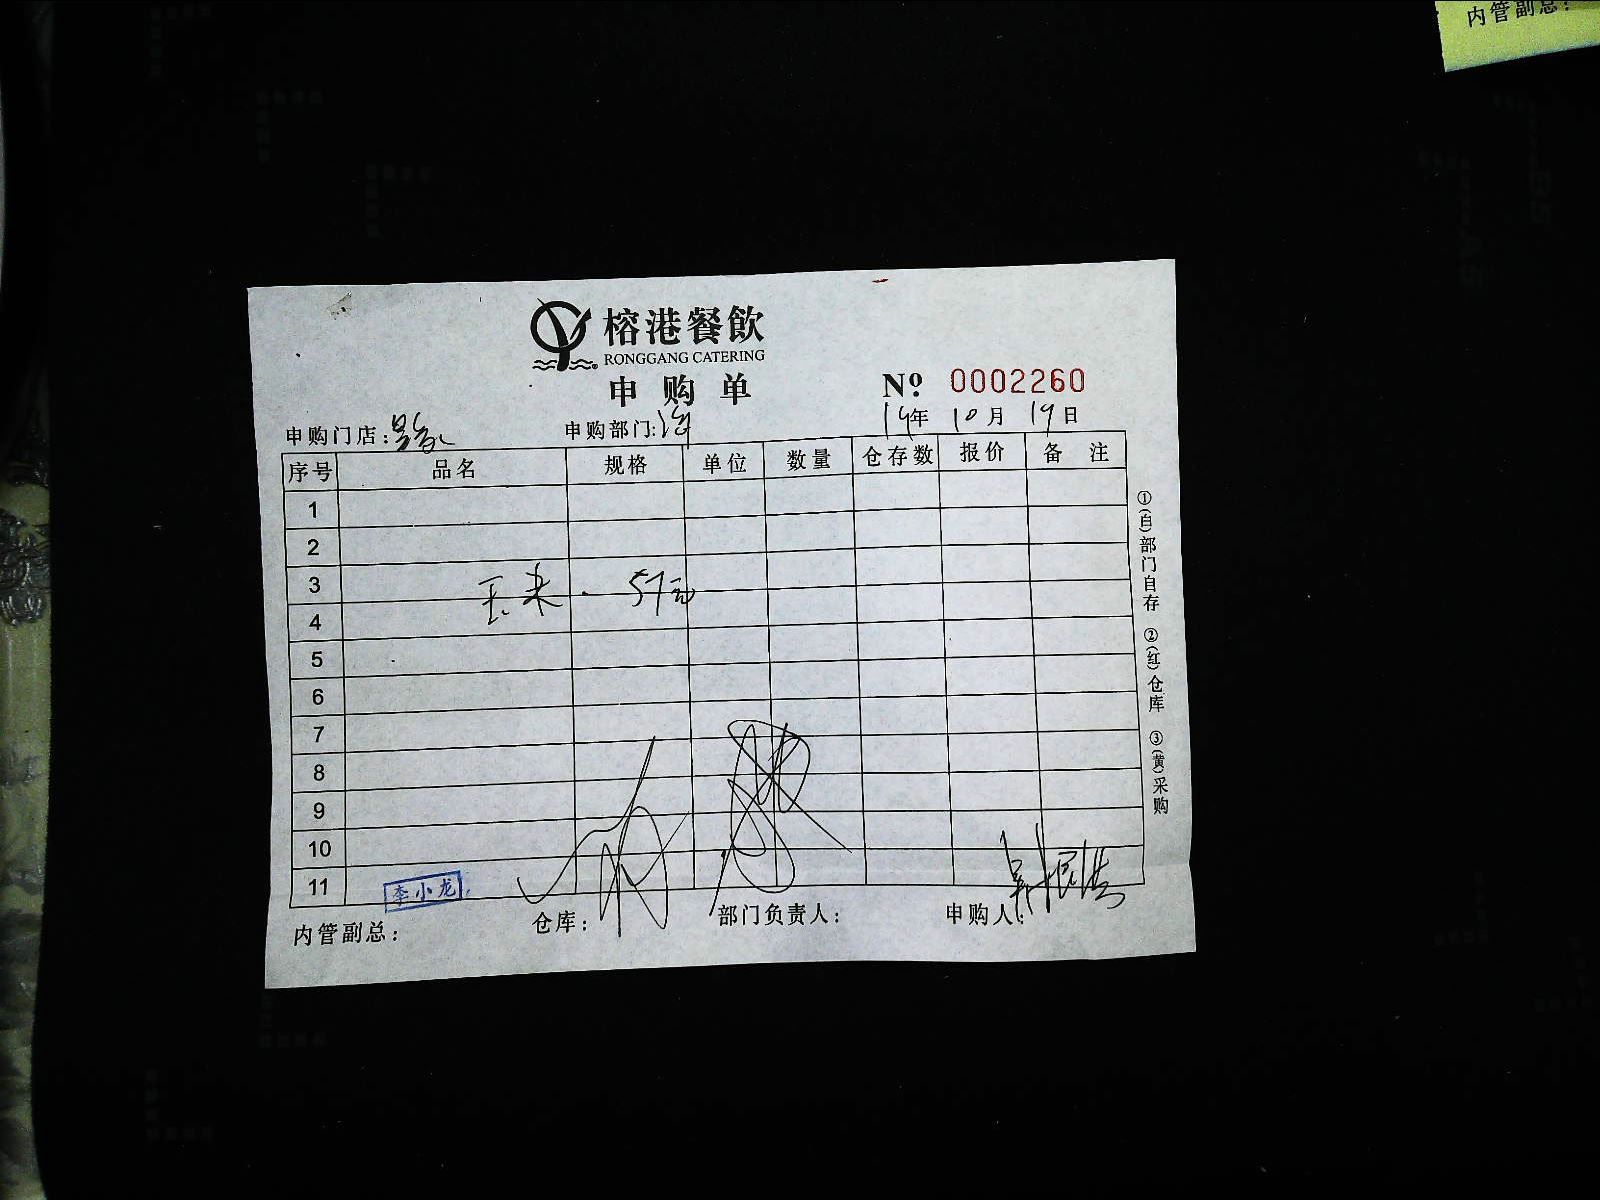 内管副总：
榕港餐飲
RONGGANG CATERING
申购单
Nº 0002260
申购门店： 申购部门： 14年 10月 19日
序号 品名 规格 单位 数量 仓存数 报价 备注
1
2
3 玉米. 57元
4
5
6
7
8
9
10
11
李小龙
内管副总： 仓库： 部门负责人： 申购人：
①(白)部门自存 ②(红)仓库 ③(黄)采购